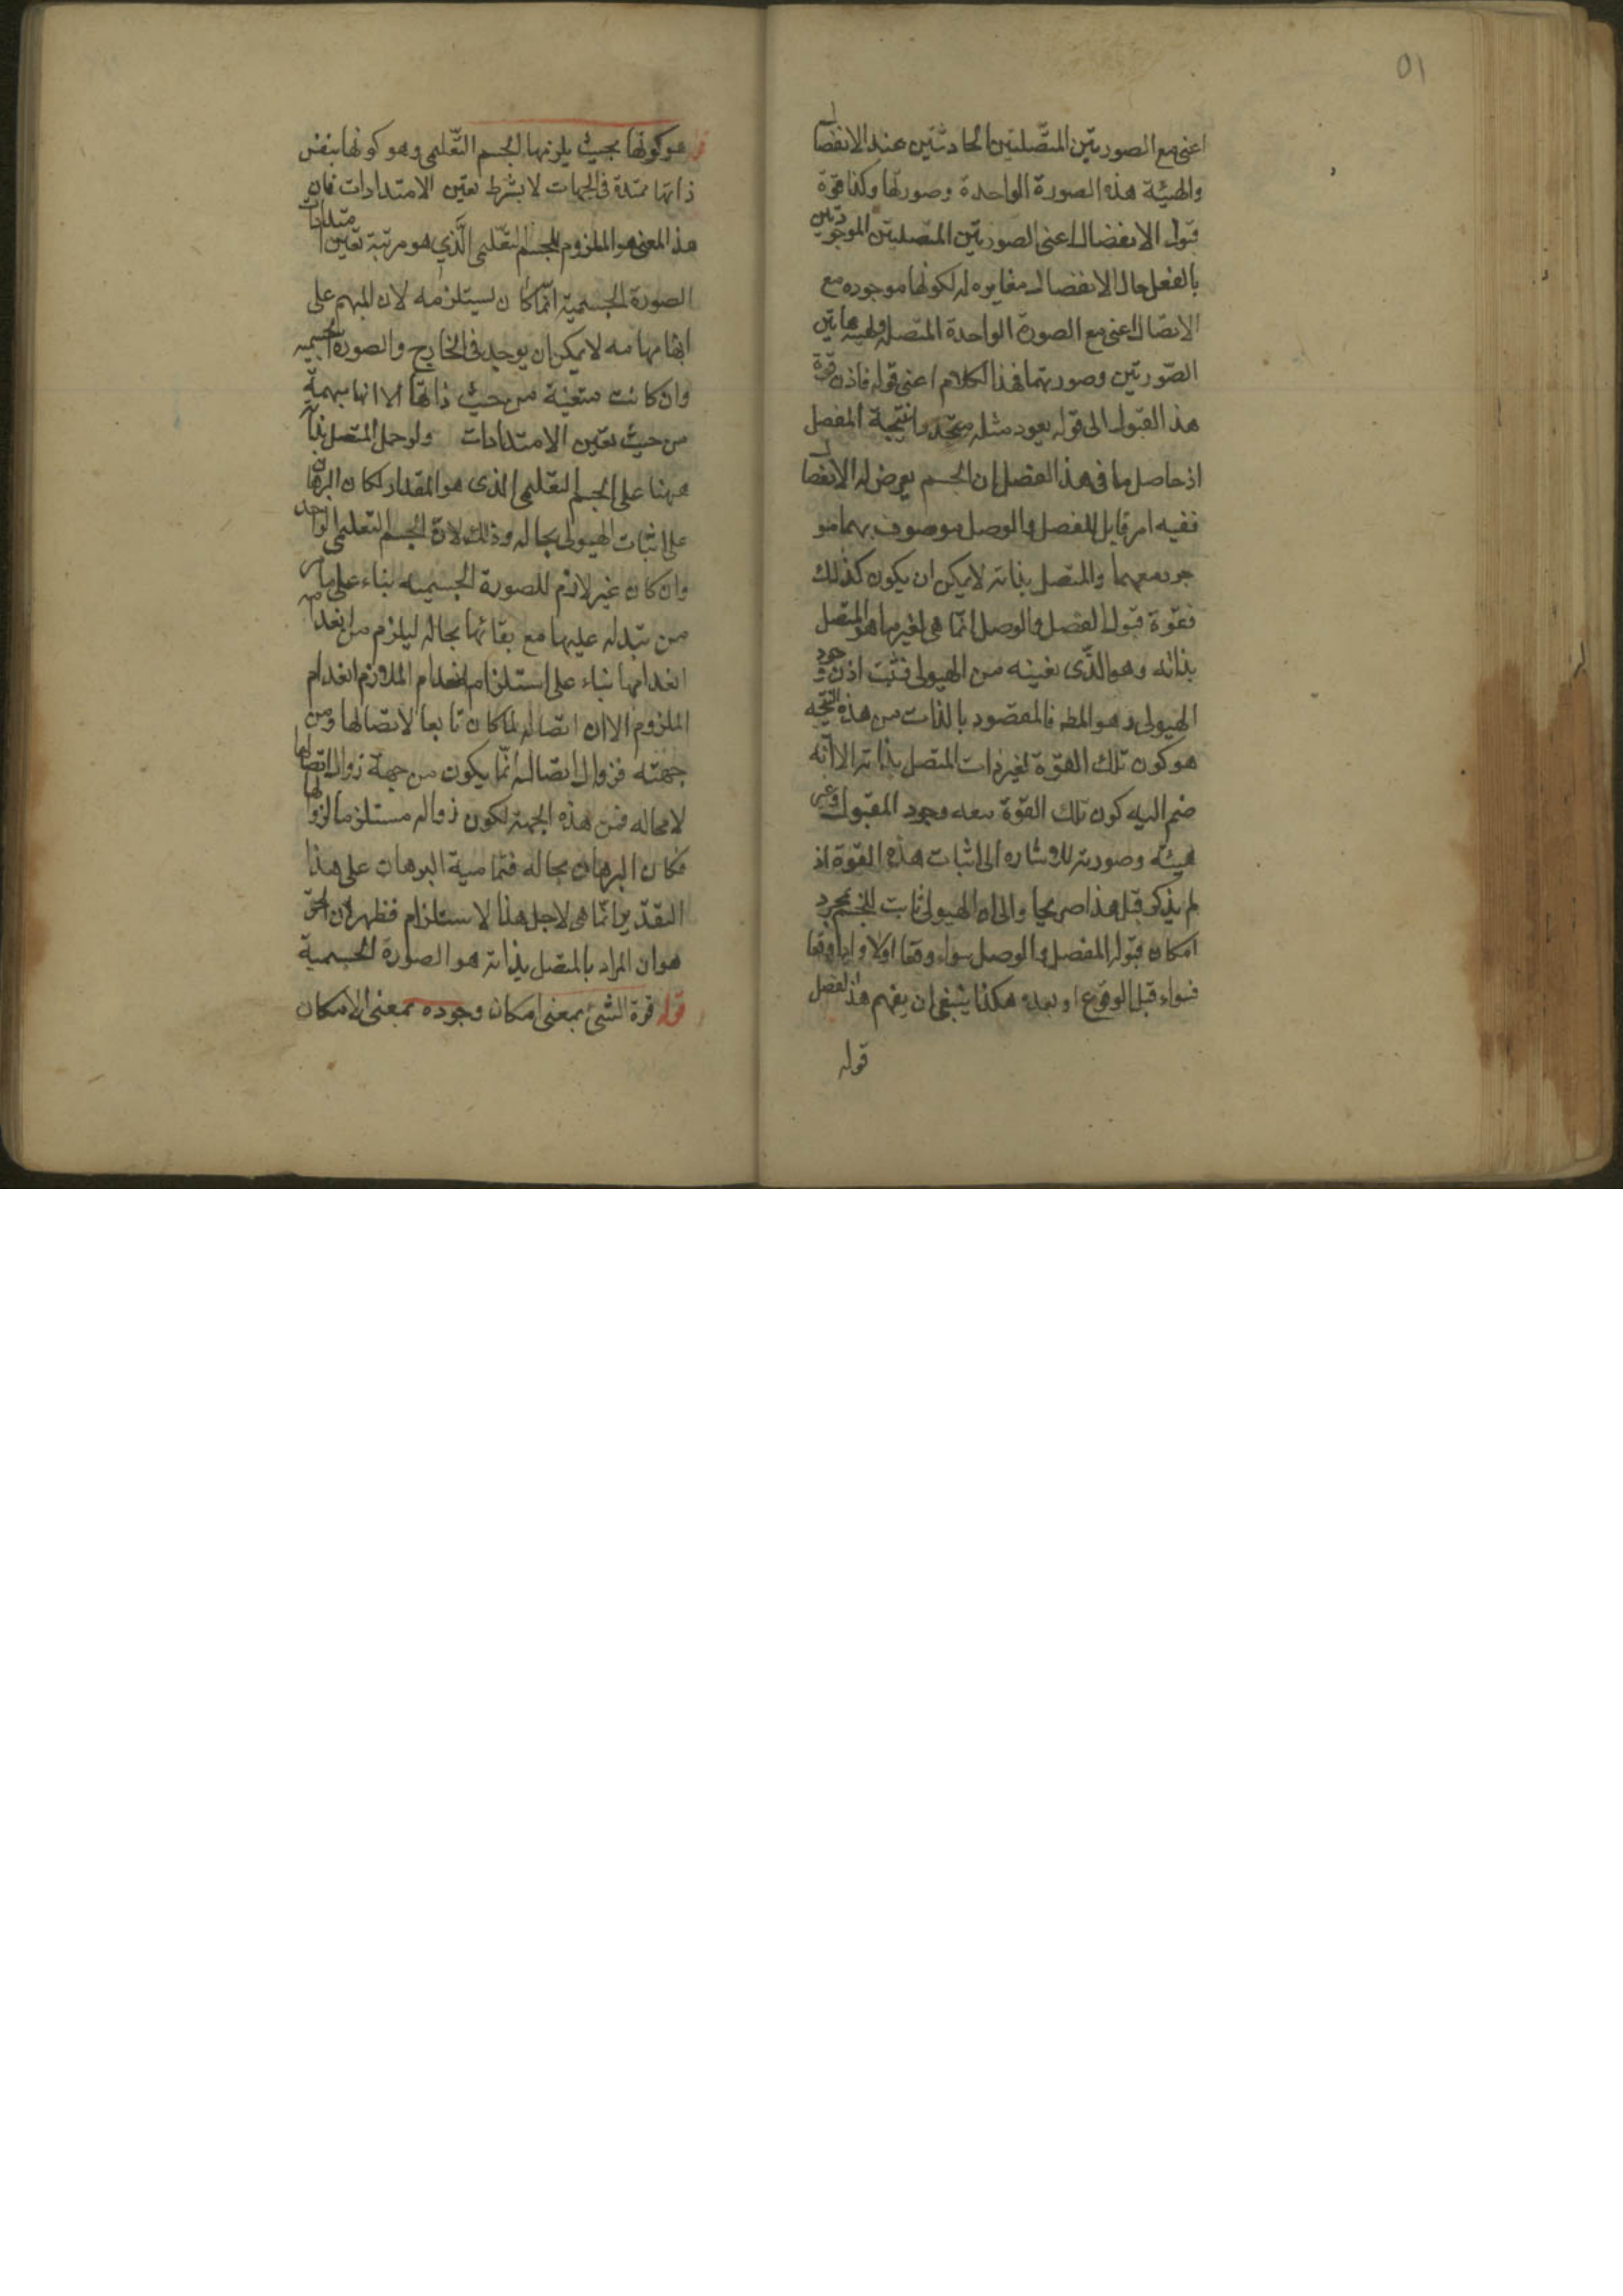 ٥١
اعنى مع الصورتين المتصلتين الحادثتين عند الانفصال
والهيئة هذه الصورة الواحدة وصورتها وكذا قوة
قبول الانفصال اعنى الصورتين المتصلتين الموجودتين
بالفعل حال الانفصال مغايره له لكونها موجوده مع
الاتصال اعنى مع الصورة الواحدة المتصلة ولهيئة هاتين
الصّورتين وصورتهما فهذا الكلام اعنى قوله فاذن قوة
هذا القبول الى قوله يعود مثله متجدد نتيجة المفصل
اذ حاصل ما فى هذا الفصل ان الجسم يعرض له الانفصال
ففيه امر قابل للفصل والوصل موصوف بهما مو
جود معهما والمتصل بذاته لا يمكن ان يكون كذلك
فقوة قبول الفصل والوصل انّما هى لغير ما هو المتصل
بذاته وهو الذّى نعنيه من الهيولى فثبت اذن وجود
الهيولى وهو المط فالمقصود بالذات من هذه النتيجه
هو كون تلك القوّة لغير ذات المتصل بذاته الا انّه
ضم اليه كون تلك القوّة معه وجود المقبول وغير
هيئته وصورته للاشاره الى اثبات هذه القوة اذ
لم يذكر قبل هذا صريحا والى ان الهيولى ثابت للجسم بمجرد
امكان قبوله الفصل والوصل سواء وقعا اولا واذا وقعا
فسواء قبل الوقوع او بعده هكذا ينبغى ان يفهم هذا الفصل
قوله
هو كونها بحيث يلزمها الجسم التّعليمى وهو كونها بنفس
ذاتها ممتدة فى الجهات لا بشرط تعين الامتدادات فان
هذا المعنى هو الملزوم للجسم التّعليمى الّذي هو مرتبة تعين امتدادات
الصورة الجسمية انّما كان يستلزمه لان المبهم على
ابهامه لا يمكن ان يوجد فى الخارج والصورة الجسميه
وان كانت متعينة من حيث ذاتها الا انها مبهمة
من حيث تعين الامتدادات ولو حمل المتصل بذاته
ههنا على الجسم التعليمى الذى هو المقدار لكان البرهان
على اثبات الهيولى بحاله وذلك لانّ الجسم التعليمى الواحد
وان كان غير لازم للصورة الجسميه بناء على ما مر
من تبدله عليها مع بقائها بحاله ليلزم من انعدامه
انعدامها بناء على استلزام انعدام اللازم انعدام
الملزوم الا ان اتصاله لما كان تابعا لاتصالها ومن
جهته فزوال اتصاله انّما يكون من جهة زوال اتصالها
لا محاله فمن هذه الجهة لكون زواله مستلزما لزوالها
فكان البرهان بحاله فتمامية البرهان على هذا
التقدير انّما هى لاجل هذا الاستلزام فظهر ان الحق
هو ان المراد بالمتصل بذاته هو الصورة الجسمية
قوله قوة الشئ بمعنى امكان وجوده بمعنى الامكان